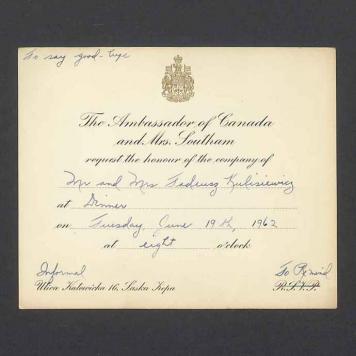 To say good-bye
The Ambassador of Canada
and Mrs. Southam
request the honour of the company of
Mr and Mrs Tadeusz Kulisiewicz
at Dinner
on Tuesday, June 19th, 1962
at eight o'clock
Informal
To Remind
Ulica Katowicka 16, Saska Kepa
R.S.V.P.